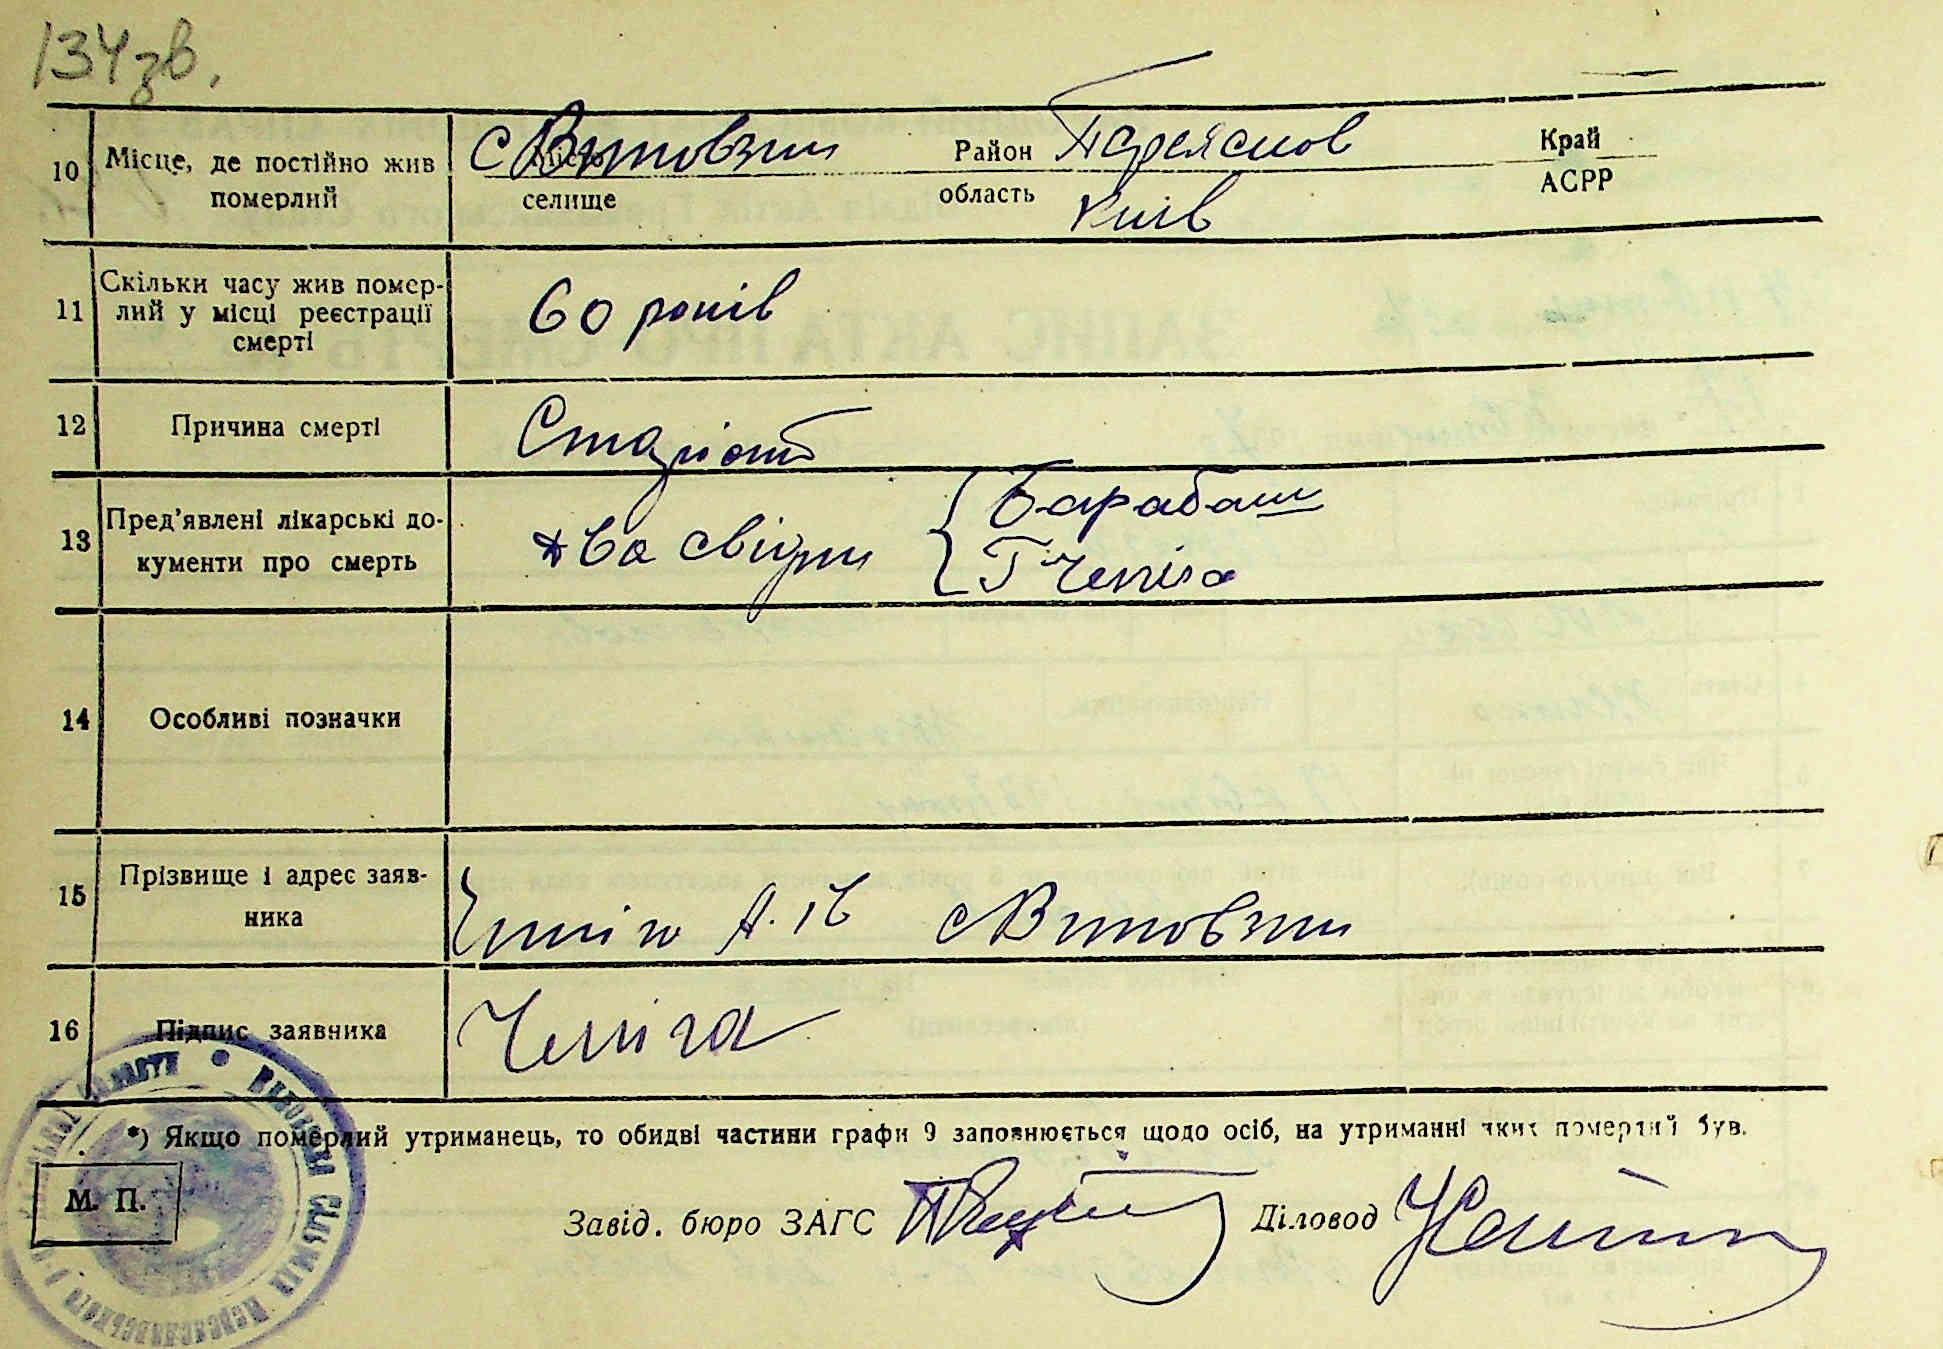 134зв.
10 Місце, де постійно жив померлий
с Витовзки
місто
селище
Район Переяслов
область Київ
Край
АСРР
11 Скільки часу жив помер-
лий у місці реєстрації
смерті
60 років
12 Причина смерті
Старість
13 Пред’явлені лікарські до-
кументи про смерть
два свідки { Барабаш
Г Чепіга
14 Особливі позначки
15 Прізвище і адрес заяв-
ника
Чепіга А. Ів с Витовзки
16 Підпис заявника
Чепіга
*) Якщо померлий утриманець, то обидві частини графи 9 заповнюється щодо осіб, на утриманні яких померлий був.
М. П.
Завід. бюро ЗАГС
Діловод